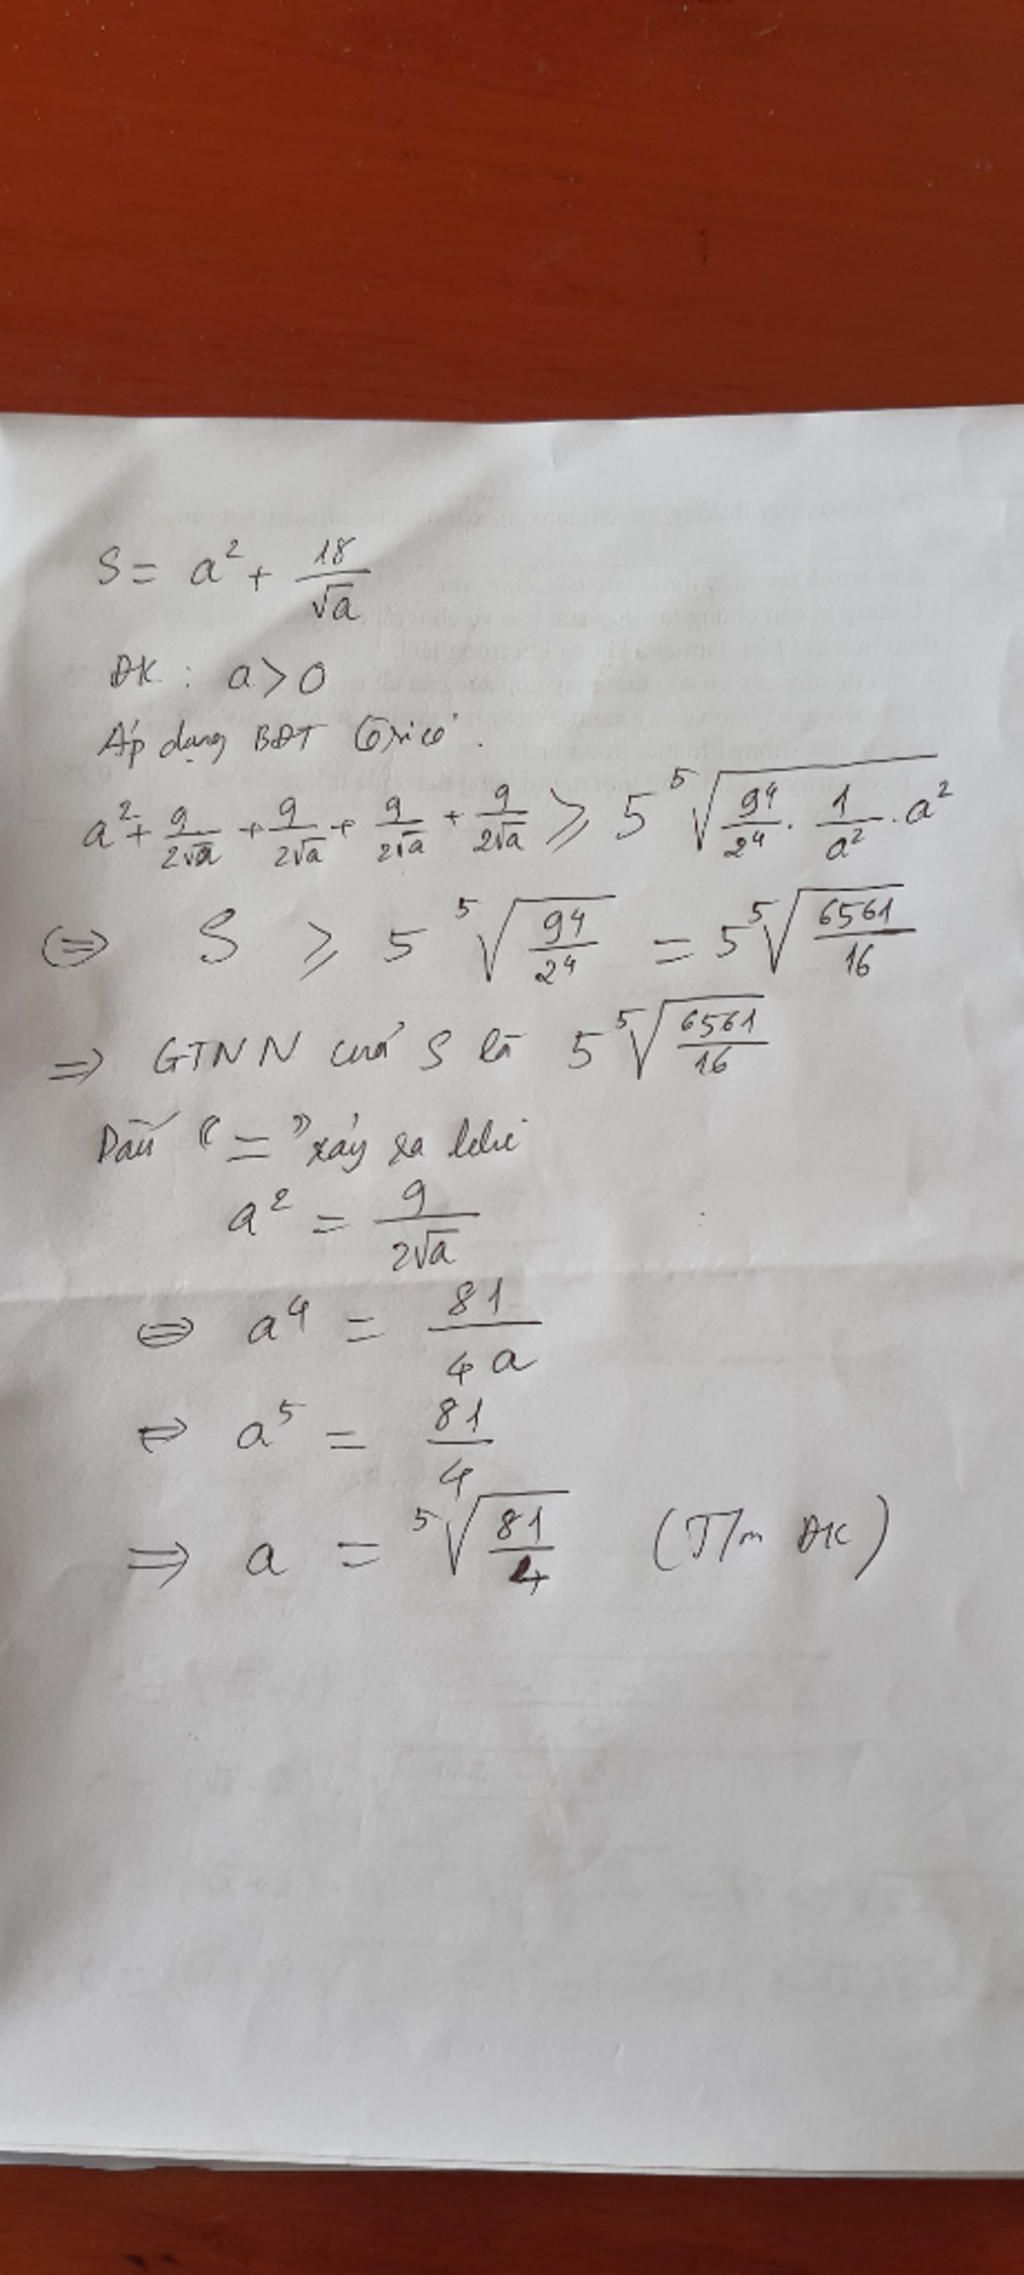 S = a² + 18/√a
ĐK : a > 0
Áp dụng BĐT Côsi có :
a² + 9/(2√a) + 9/(2√a) + 9/(2√a) + 9/(2√a) ≥ 5 ⁵√(9⁴/2⁴ · 1/a² · a²)
⇔ S ≥ 5 ⁵√(9⁴/2⁴) = 5 ⁵√(6561/16)
⇒ GTNN của S là 5 ⁵√(6561/16)
Dấu "=" xảy ra khi
a² = 9/(2√a)
⇔ a⁴ = 81/(4a)
⇔ a⁵ = 81/4
⇒ a = ⁵√(81/4) (T/m ĐK)